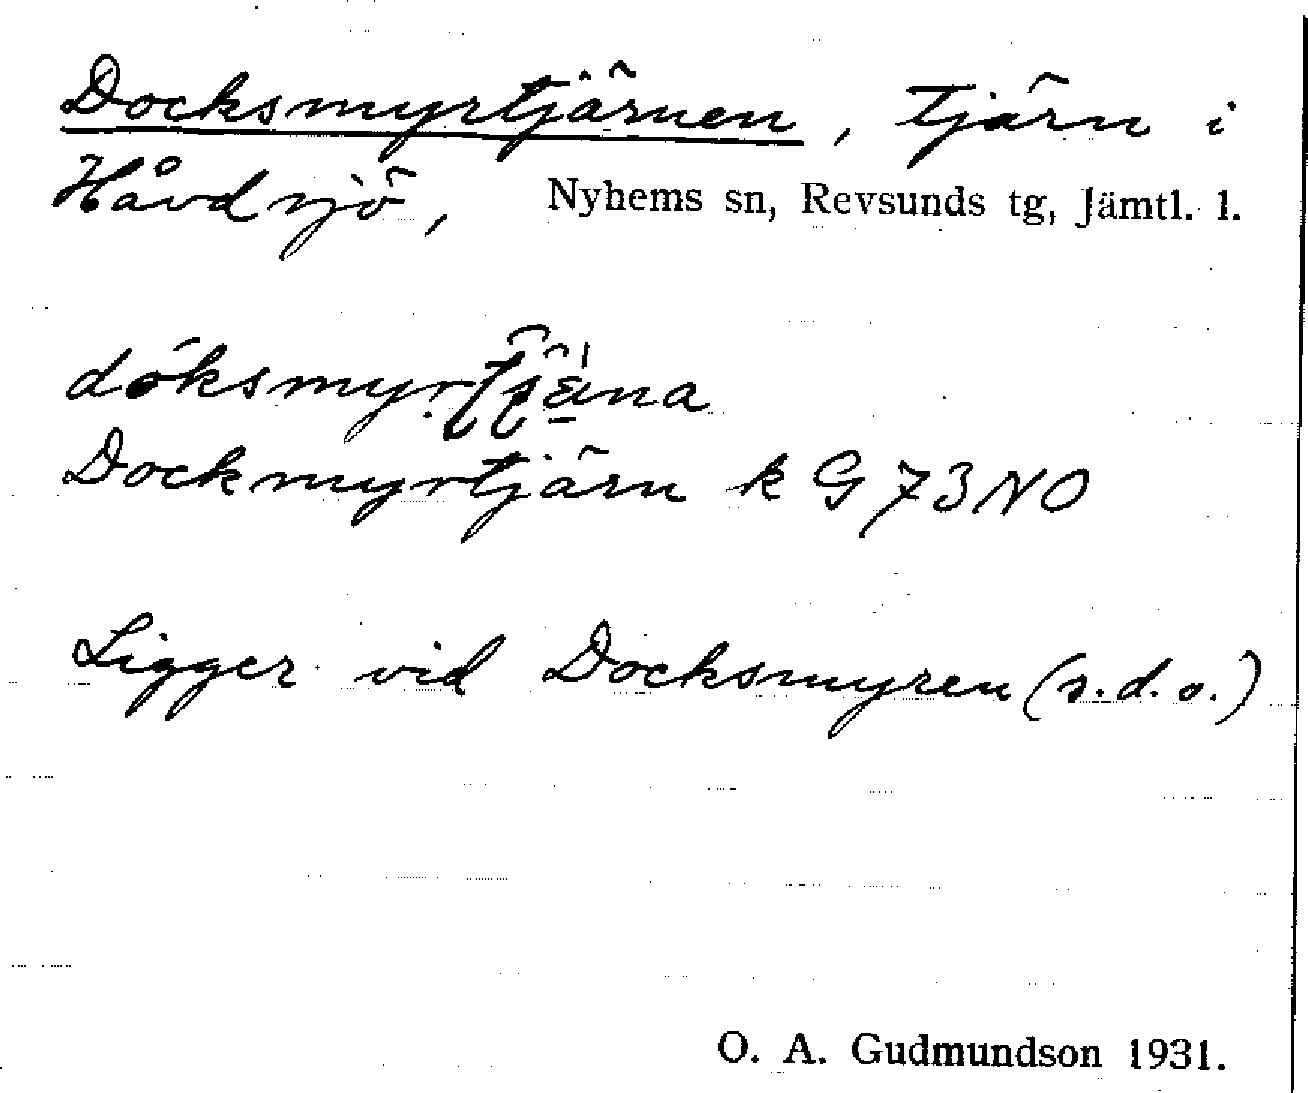 Docksmyrtjärnen, tjärn i
Håvdsjö, Nyhems sn, Revsunds tg, Jämtl. l.
Dockmyrtjärn k G 73 NO
Ligger vid Docksmyren (s.d.o.)
O. A. Gudmundson 1931.